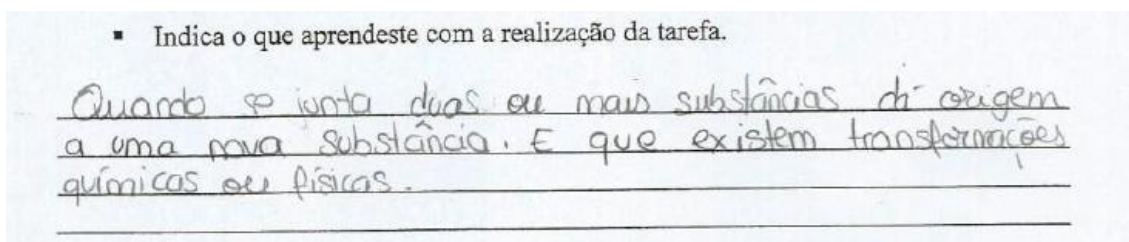 ▪ Indica o que aprendeste com a realização da tarefa.
Quando se junta duas ou mais substâncias dí origem
a uma nova substância. E que existem transformações
químicas ou físicas.